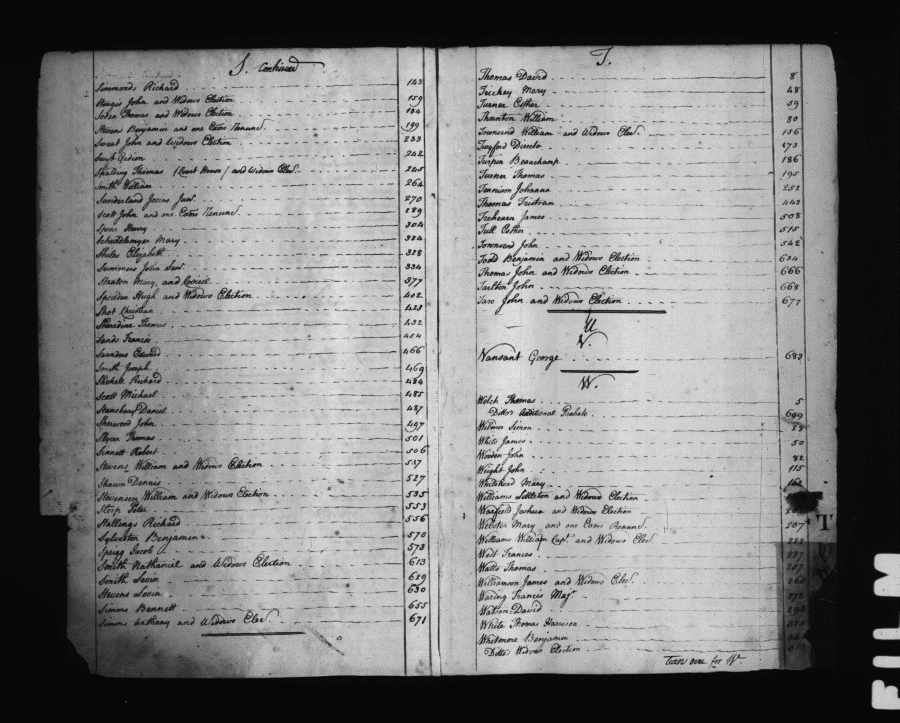 S. Continued
Simmonds Richard 143
Sturgis John and Widows Election 159
Soden Thomas and Widows Election 184
Stevens Benjamin and one Exors Renunc. 199
Sweat John and Widows Election 233
Swift Gideon 242
Spalding Thomas (Court House) and Widows Elec. 245
Smith William 264
Sunderland Josias Junr. 270
Scott John and one Exors Renunc. 289
Spear Henry 304
Mary 324
Stiles Elizabeth 328
Summers John Senr. 334
Stanton Mary, and 377
Spedden Hugh and Widows Election 402
Shot Christian 428
Sheredine Thomas 432
Sands Francis 454
Saunders Edward 466
Smith Joseph 469
Richard 484
Scott Michael 485
Stansbury Daniel 487
Sherwood John 497
Slycer Thomas 501
Sinnett Robert 506
Stevens William and Widows Election 517
Shawn Dennis 527
Stevenson William and Widows Election 535
Peter 553
Stallings Richard 556
Sylvester Benjamin 570
Sprigg Jacob 578
Smith Nathaniel and Widows Election 613
Smith Levin 629
Stevens Levin 630
Simms Bennett 655
Simms Anthony and Widows Elec. 671
T.
Thomas David 8
Trickey Mary 48
Turner Esther 59
Thornton William 80
Townsend William and Widows Elec. 156
Twyford Director 173
Turpin Beauchamp 186
Turner Thomas 195
Tennison Johanna 252
Thomas Tristran 443
Trehearn James 508
Tull Esther 515
Townsend John 542
Todd Benjamin and Widows Election 634
Thomas John and Widows Election 666
Tarlton John 668
John and Widows Election 677
U
V.
Vansant George 683
W.
Welch Thomas 5
Ditto's Additional Probate 699
Simon 28
White James 50
Wooden John 82
Wright John 115
Whitehead Mary
Williams Littleton and Widows Election
Warfield Joshua and Widows Election
Webster Mary and one Exors Renunc. 207
Williams William Capt. and Widows Elec.
West Frances
Watts Thomas
Williamson James and Widows Elec.
Waring Francis Majr.
Watson David
White Thomas Harrison
Whitmore Benjamin
Ditto Widows Election
Turn over for W
T
FILM